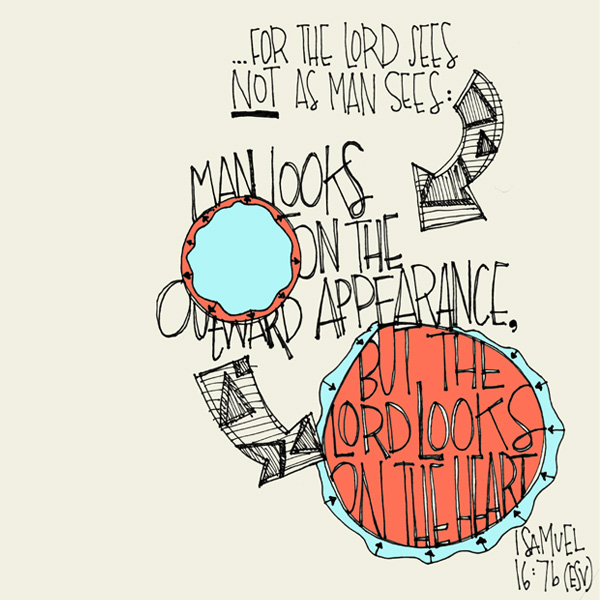 ...FOR THE LORD SEES
NOT AS MAN SEES:
MAN LOOKS
ON THE
OUTWARD APPEARANCE,
BUT THE
LORD LOOKS
ON THE HEART
1 SAMUEL
16:7b (ESV)